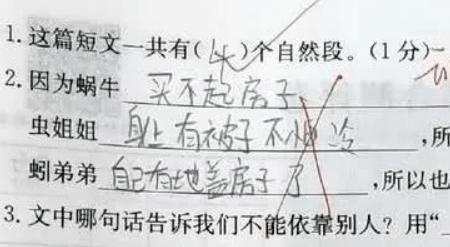 1.这篇短文一共有( )个自然段。(1分)
2.因为蜗牛 买不起房子
虫姐姐 身上有被子不怕冷 ,所
蚓弟弟 自己有地盖房子了 ,所以也
3.文中哪句话告诉我们不能依靠别人?用“